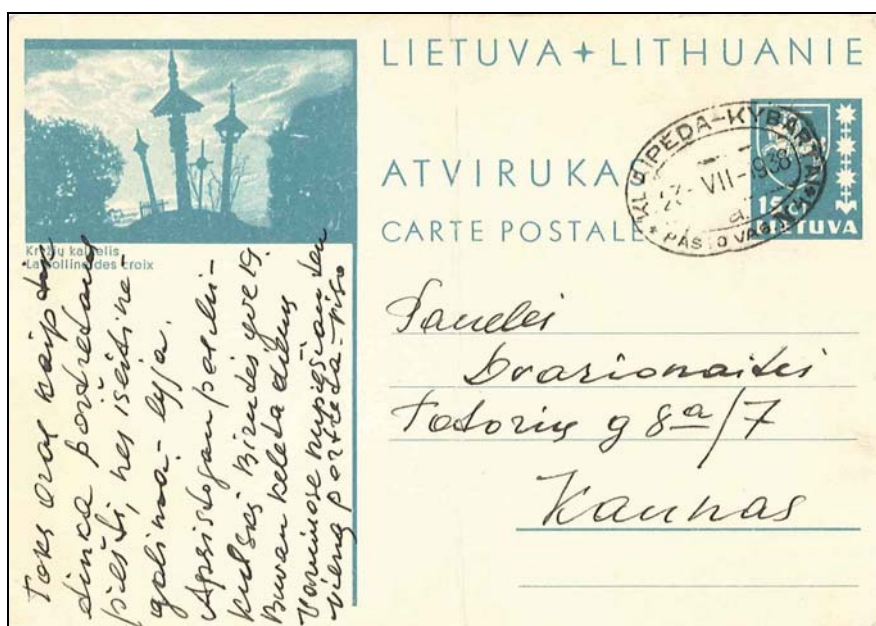 LIETUVA + LITHUANIE
ATVIRUKAS
CARTE POSTALE
KLAIPĖDA-KYBARTAI
VII-1938
a.
PAŠTO VAG.
15 ct
LIETUVA
Kryžių kalnelis
La colline des croix
Panelei
Dvarionaitei
Totorių g 8a/7
Kaunas
Toks oras kaip
tinka portretams
piešti, nes išeiti ne-
galima - lyja.
Apsistojau pas
gve 19.
Buvau keletą dienų
nupiešiau ten
vieną portretą - viso